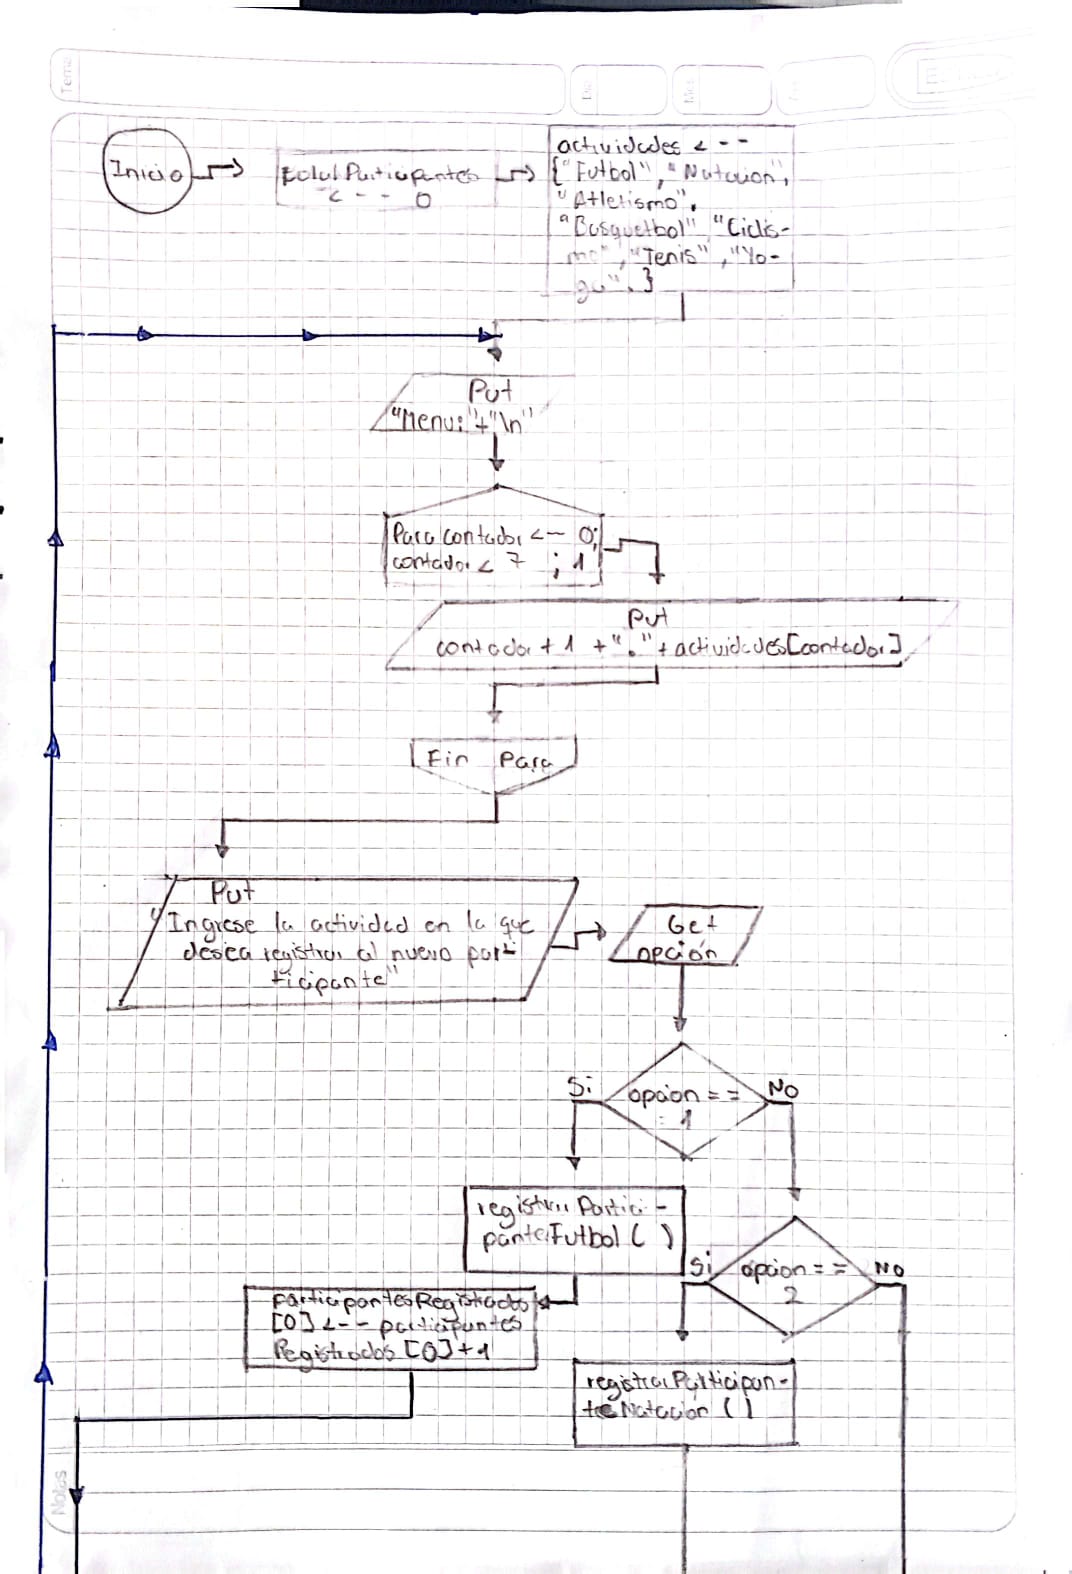 Tema
Inicio
totalParticipantes
<-- 0
actividades <--
{"Futbol", "Natacion",
"Atletismo",
"Basquetbol" "Ciclis-
mo", "Tenis", "Yo-
ga". }
Put
"Menu:"+"\n"
Para contador <-- 0;
contador < 7 ; 1
Put
contador + 1 + "." + actividades[contador]
Fin Para
Put
"Ingrese la actividad en la que
desea registrar al nuevo part-
ticipante"
Get
opción
Si
opcion ==
1
No
registrar Partici-
panteFutbol ( )
Si
opcion ==
2
No
participantesRegistrados
[0] <-- participantes
Registrados [0] +1
registrarParticipan-
teNatacion ( )
Notas